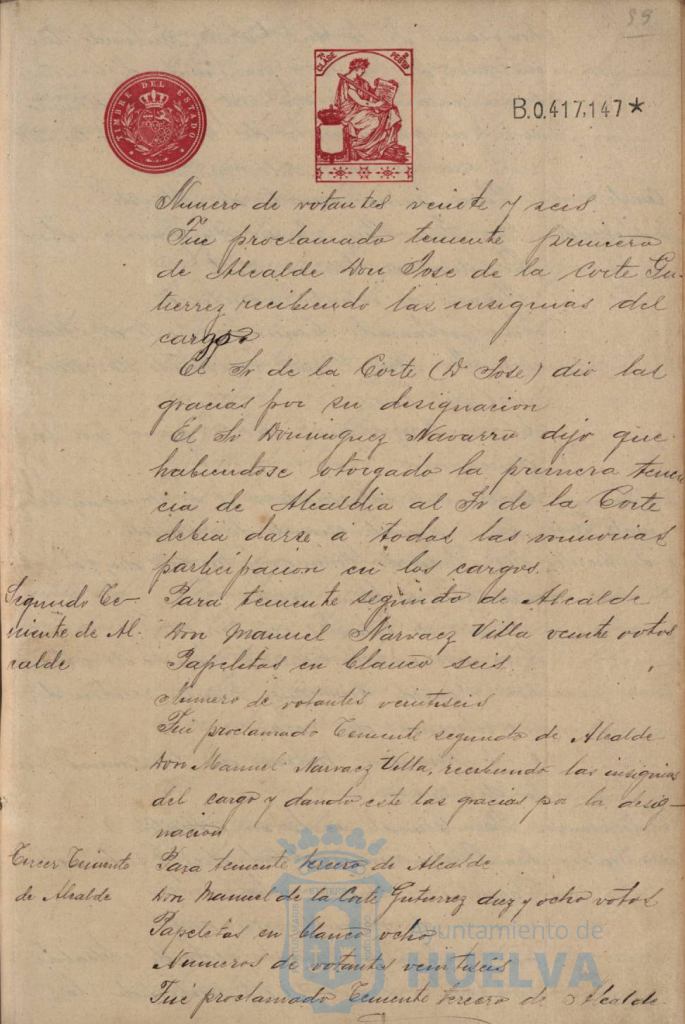 99
TIMBRE DEL ESTADO
7ª CLASE
PESETAS
B.0.417,147*
Numero de votantes veinte y seis.
Fué proclamado teniente primero
de Alcalde Don Jose de la Corte Gu-
tierrez recibiendo las insignias del
cargo
El Sr de la Corte (Dn Jose) dio las
gracias por su designacion
El Sr Dominguez Navarro dijo que
habiendose otorgado la primera tenen
cia de Alcaldia al Sr de la Corte
debia darse a todas las minorias
participacion en los cargos.
Segundo Te-
niente de Al-
calde
Para teniente segundo de Alcalde
Don Manuel Narvaez Villa veinte votos
Papeletas en blanco seis.
Numero de votantes veintiseis
Fué proclamado Teniente segundo de Alcalde
Don Manuel Narvaez Villa, recibiendo las insignias
del cargo y dando este las gracias por la desig-
nacion
Tercer Teniente
de Alcalde
Para teniente tercero de Alcalde
Don Manuel de la Corte Gutierrez diez y ocho votos
Papeletas en blanco ocho
Numeros de votantes veintiseis
Fué proclamado Teniente tercero de Alcalde
Ayuntamiento de
HUELVA